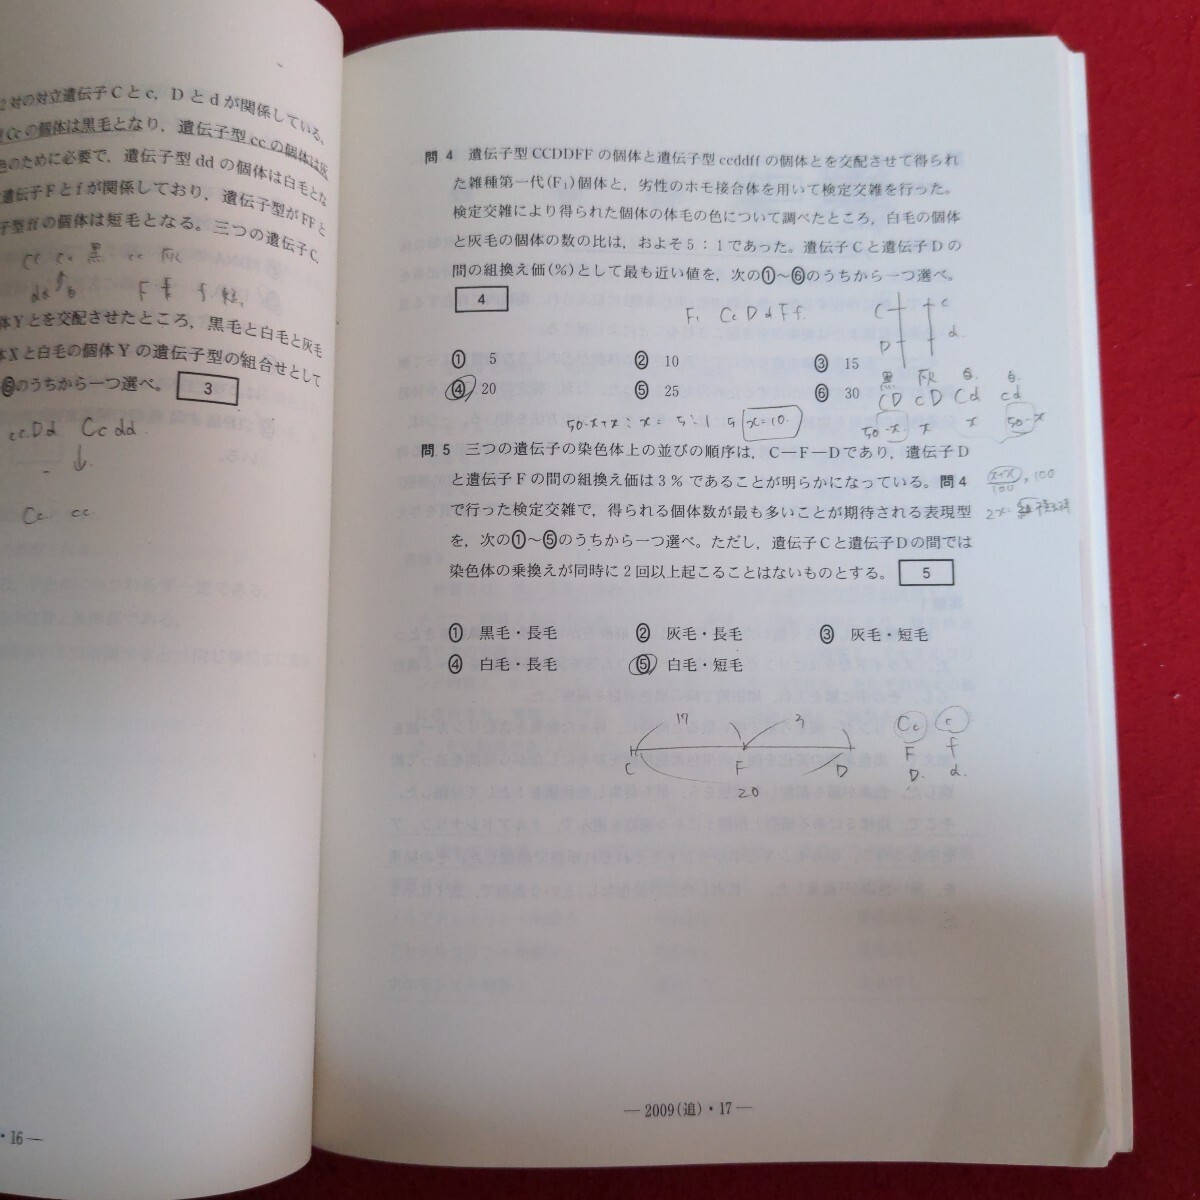 2対の対立遺伝子Cとc，Dとdが関係している。
Ccの個体は黒毛となり，遺伝子型ccの個体は灰
色のために必要で，遺伝子型ddの個体は白毛とな
遺伝子Fとfが関係しており，遺伝子型がFFと
子型ffの個体は短毛となる。三つの遺伝子C，
体Yとを交配させたところ，黒毛と白毛と灰毛
体Xと白毛の個体Yの遺伝子型の組合せとして
⑥のうちから一つ選べ。 3
ccDd Ccdd
Cc cc
・16—
問4 遺伝子型CCDDFFの個体と遺伝子型ccddffの個体とを交配させて得られ
た雑種第一代(F₁)個体と，劣性のホモ接合体を用いて検定交雑を行った。
検定交雑により得られた個体の体毛の色について調べたところ，白毛の個体
と灰毛の個体の数の比は，およそ5：1であった。遺伝子Cと遺伝子Dの
間の組換え価(％)として最も近い値を，次の①～⑥のうちから一つ選べ。
4
F₁ CcDdFf.
C c
D d
① 5 ② 10 ③ 15
④ 20 ⑤ 25 ⑥ 30
黒 灰 白 白
CD cD Cd cd
50-x x x 50-x
50-x+x : x = 5:1 x=10.
問5 三つの遺伝子の染色体上の並びの順序は，C—F—Dであり，遺伝子D
と遺伝子Fの間の組換え価は3％であることが明らかになっている。問4
で行った検定交雑で，得られる個体数が最も多いことが期待される表現型
を，次の①～⑤のうちから一つ選べ。ただし，遺伝子Cと遺伝子Dの間では
染色体の乗換えが同時に2回以上起こることはないものとする。 5
① 黒毛・長毛 ② 灰毛・長毛 ③ 灰毛・短毛
④ 白毛・長毛 ⑤ 白毛・短毛
17 3
C F D
20
Cc c
F f
D. d.
— 2009(追)・17 —